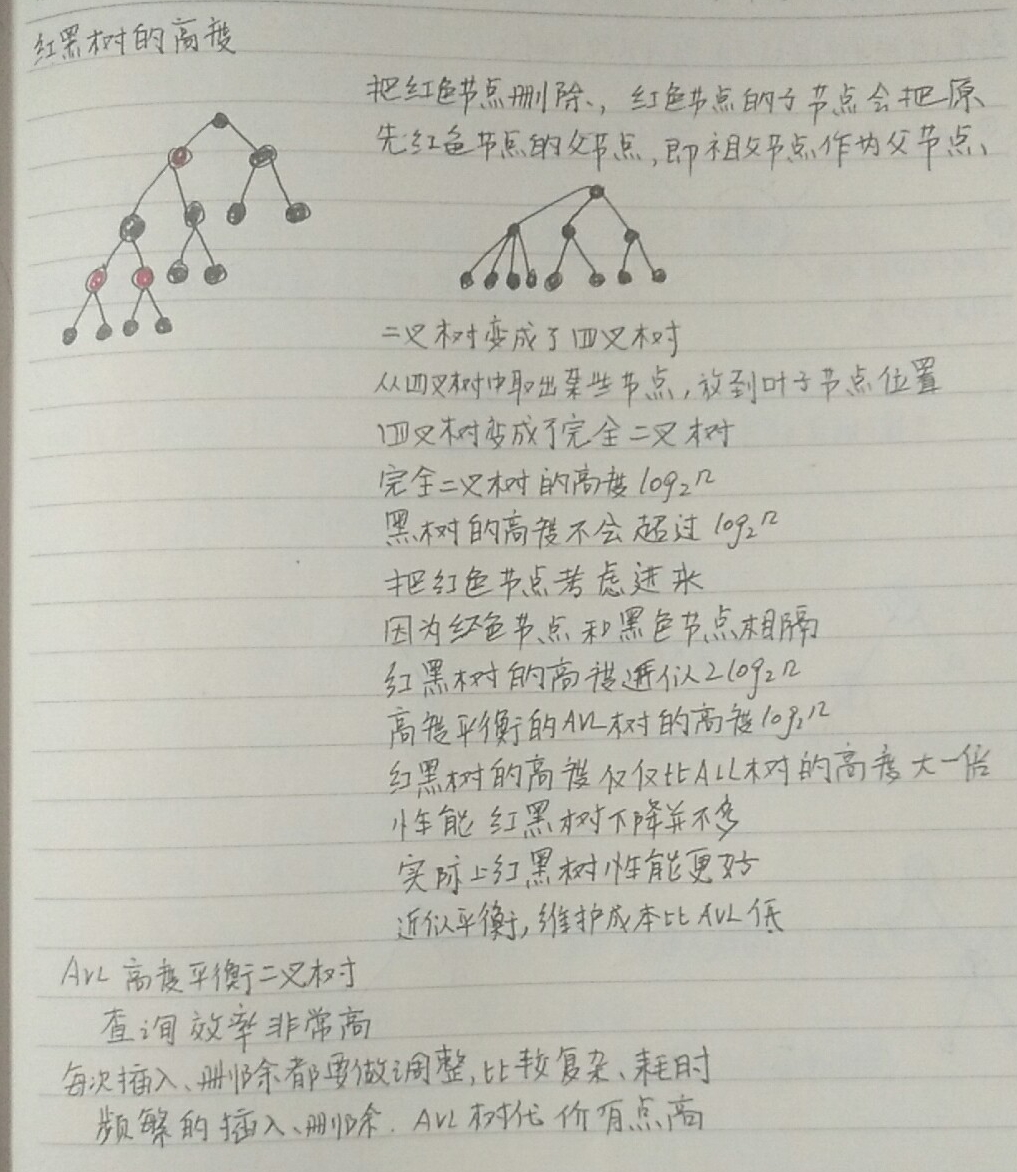 红黑树的高度
把红色节点删除、，红色节点的子节点会把原
先红色节点的父节点，即祖父节点作为父节点、
二叉树变成了四叉树
从四叉树中取出某些节点，放到叶子节点位置
四叉树变成了完全二叉树
完全二叉树的高度log₂n
黑树的高度不会超过log₂n
把红色节点考虑进来
因为红色节点和黑色节点相隔
红黑树的高度近似2log₂n
高度平衡的AVL树的高度log₂n
红黑树的高度仅仅比AVL树的高度大一倍
性能红黑树下降并不多
实际上红黑树性能更好
近似平衡，维护成本比AVL低
AVL高度平衡二叉树
查询效率非常高
每次插入、删除都要做调整，比较复杂、耗时
频繁的插入、删除．AVL树代价有点高